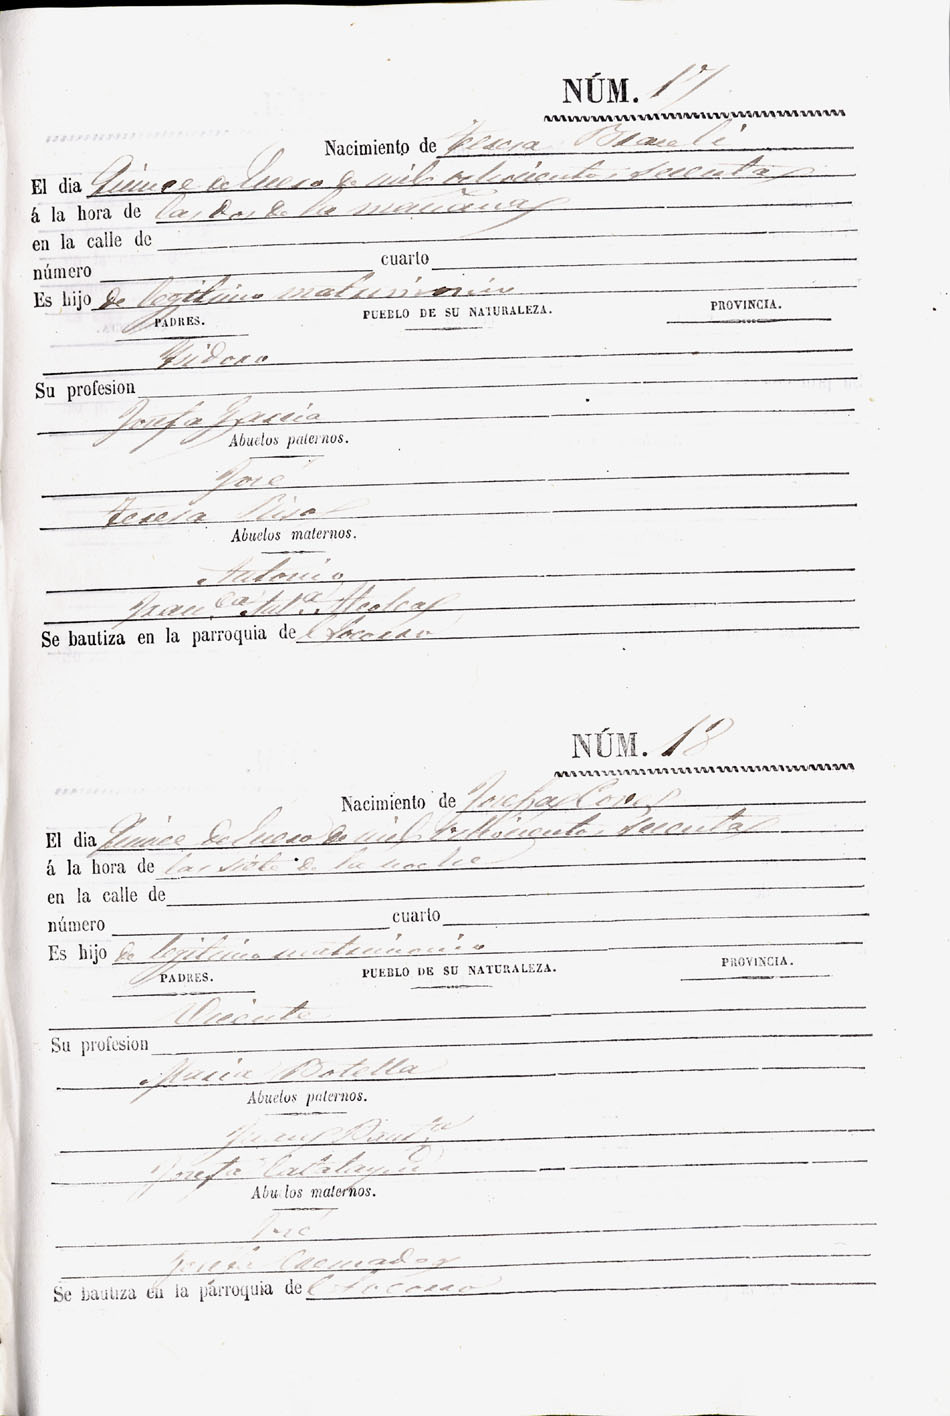 NÚM. 17
Nacimiento de Teresa
El dia Quince de Enero de mil ochocientos sesenta
á la hora de las dos de la mañana
en la calle de
número cuarto
Es hijo de legitimo matrimonio
PADRES. PUEBLO DE SU NATURALEZA. PROVINCIA.
Isidoro
Su profesion
Josefa Garcia
Abuelos paternos.
José
Teresa
Abuelos maternos.
Antonio
Se bautiza en la parroquia de
NÚM. 18
Nacimiento de Josefa
El dia Quince de Enero de mil ochocientos sesenta
á la hora de las siete de la noche
en la calle de
número cuarto
Es hijo de legitimo matrimonio
PADRES. PUEBLO DE SU NATURALEZA. PROVINCIA.
Vicente
Su profesion
Maria Botella
Abuelos paternos.
Josefa Catalayud
Abuelos maternos.
José
Se bautiza en la parroquia de